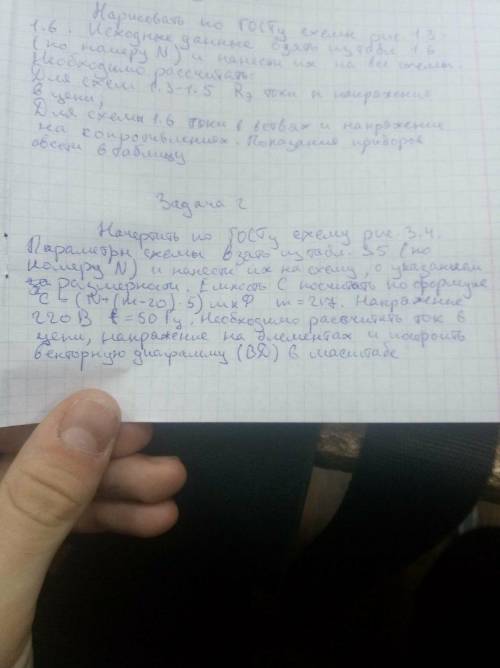 Нарисовать по ГОСТу схемы рис 1.3-
1.6. Исходные данные взять из табл 1.6
(по номеру N) и нанести их на все схемы.
Необходимо рассчитать:
Для схем 1.3-1.5 Rэ токи и напряжение
в цепи,
Для схемы 1.6 токи в ветвях и напряжение
на сопротивлениях. Показания приборов
свести в таблицу
Задача 2
Начертить по ГОСТу схему рис. 3.4.
Параметры схемы взять из табл. 3.5 (по
номеру N) и нанести их на схему, с указанием
размерности. Емкость С посчитать по формуле
C = (N+(m-20).5) мкФ m = 217. Напряжение
220 В f = 50 Гц. Необходимо расвчитать ток в
цепи, напряжение на элементах и построить
векторную диаграмму (ВД) в масштабе